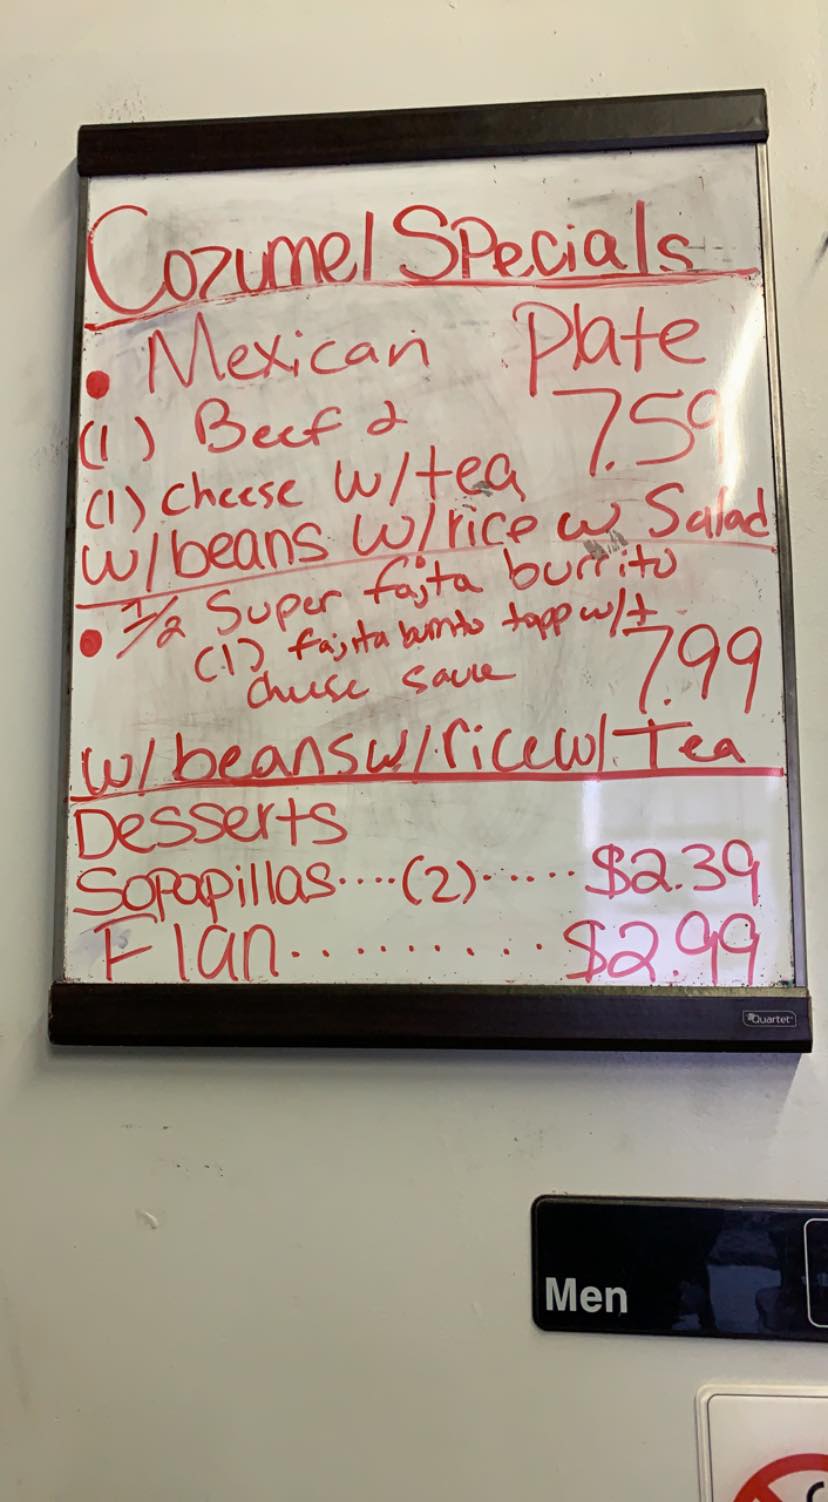 Cozumel Specials
• Mexican Plate
(1) Beef & 7.59
(1) cheese w/tea
w/beans w/rice w Salad
• 1/2 Super fajita burrito
(1) fajita burrito topp w/
cheese sauce 7.99
w/beans w/rice w/ Tea
Desserts
Sopapillas....(2)...... $2.39
Flan.......... $2.99
Quartet
Men